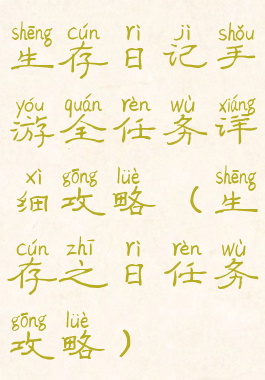 shēng cún rì jì shǒu
生存日记手
yóu quán rèn wù xiáng
游全任务详
xì gōng lüè shēng
细攻略（生
cún zhī rì rèn wù
存之日任务
gōng lüè
攻略）